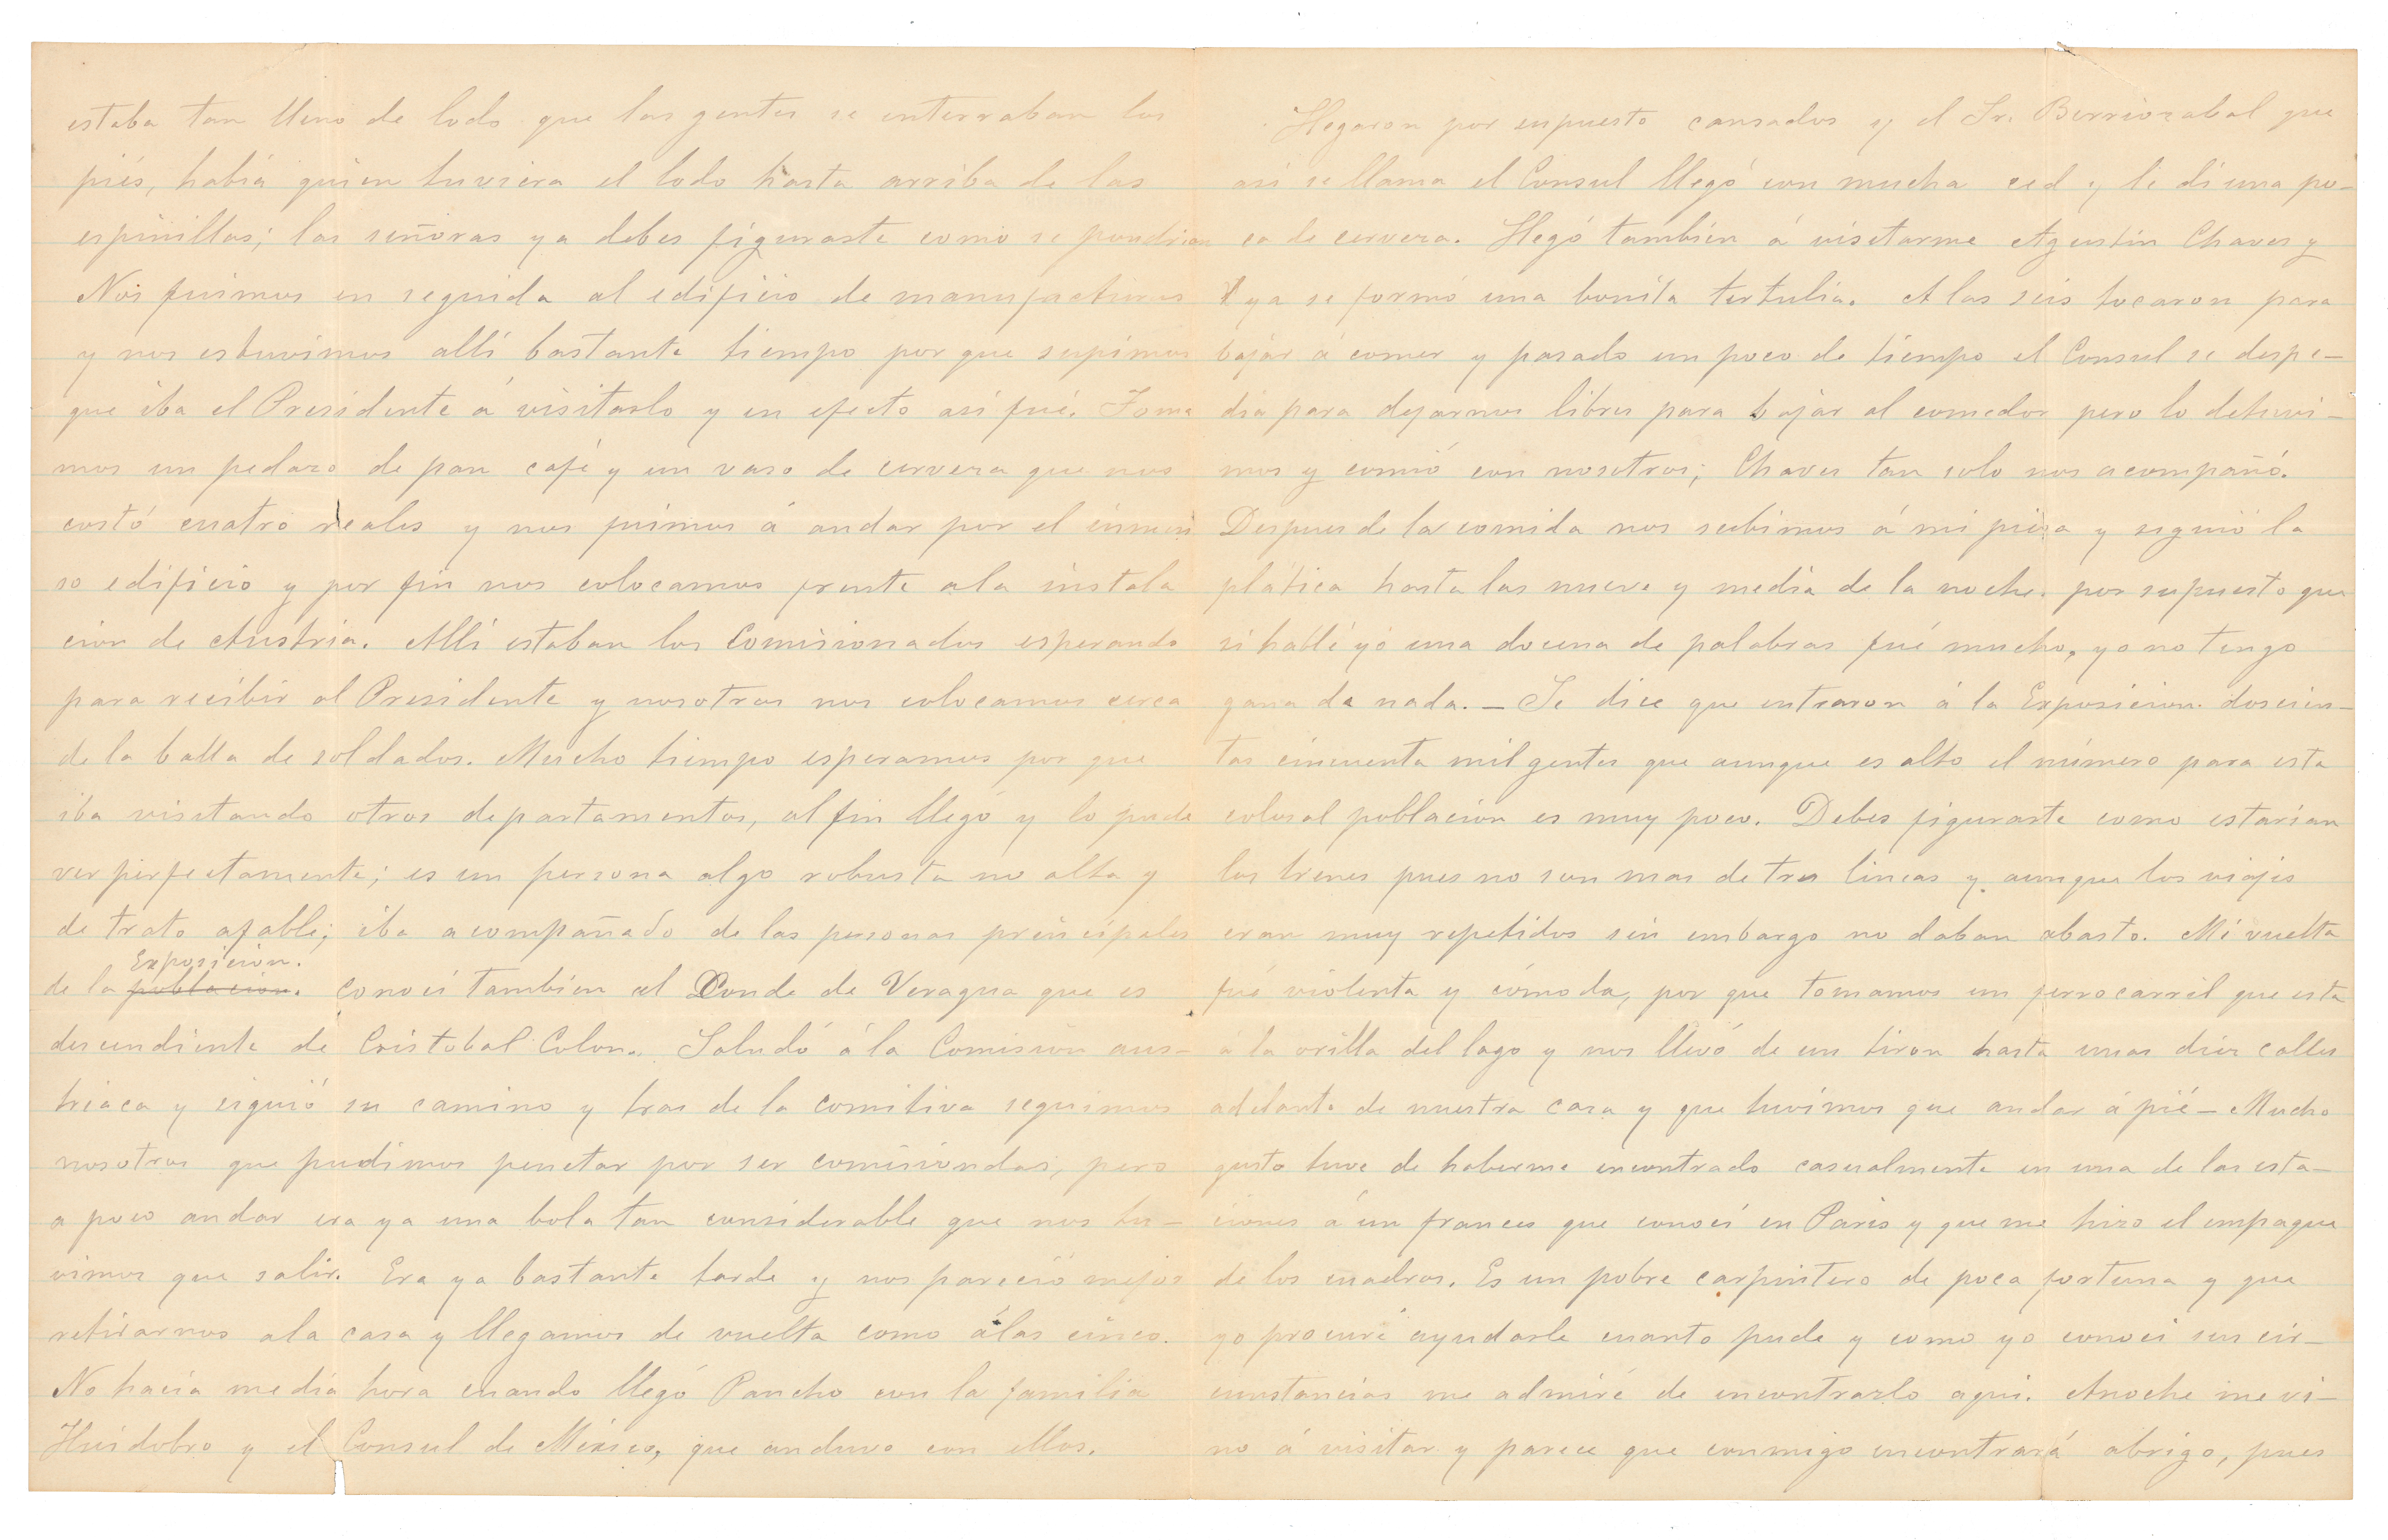 estaba tan lleno de lodo que las gentes se enterraban los
piés, habia quien tuviera el lodo hasta arriba de las
espinillas; las señoras ya debes figurarte como se pondrian
Nos fuimos en seguida al edificio de manufacturas
y nos estuvimos allí bastante tiempo por que supimos
que iba el Presidente á visitarlo y en efecto así fué. Toma
mos un pedazo de pan café y un vaso de cerveza que nos
costó cuatro reales y nos fuimos á andar por el inmen
so edificio y por fin nos colocamos frente ala instala
cion de Austria. Allí estaban los Comisionados esperando
para recibir al Presidente y nosotros nos colocamos cerca
de la balla de soldados. Mucho tiempo esperamos por que
iba visitando otros departamentos, al fin llegó y lo pude
ver perfectamente; es un persona algo robusta no alta y
de trato afable; iba acompañado de las personas principales
de la poblacion. Exposicion. Conocí tambien al Conde de Veragua que es
descendiente de Cristobal Colon. Saludó á la Comision aus-
triaca y siguió su camino y tras de la comitiva seguimos
nosotros que pudimos penetar por ser comisiondos, pero
a poco andar era ya una bola tan considerable que nos tu-
vimos que salir. Era ya bastante tarde y nos pareció mejor
retirarnos ala casa y llegamos de vuelta como álas cinco.
No hacia media hora cuando llegó Pancho con la familia
Huidobro y el Consul de México, que anduvo con ellos.
Llegaron por supuesto cansados y el Sr. Berriozabal que
así se llama el Consul llegó con mucha sed y le dí una po-
ca de cerveza. Llegó tambien á visitarme Agustin Chaves y
ya se formó una bonita tertulia. A las seis tocaron para
bajar á comer y pasado un poco de tiempo el Consul se despe-
dia para dejarnos libres para bajar al comedor pero lo detuvi-
mos y comió con nosotros; Chaves tan solo nos acompañó.
Despues de la comida nos subimos á mi pieza y siguió la
plática hasta las nueve y media de la noche. por supuesto que
si hablé yo una docena de palabras fué mucho, yo no tengo
gana de nada. - Se dice que entraron á la Exposicion. doscien-
tas cincuenta mil gentes que aunque es alto el número para esta
colosal poblacion es muy poco. Debes figurarte como estarian
los trenes pues no son mas de tres lineas y aunque los viajes
eran muy repetidos sin embargo no daban abasto. Mi vuelta
fué violenta y cómoda, por que tomamos un ferrocarril que esta
á la orilla del lago y nos llevó de un tiron hasta unas diez calles
adelante de nuestra casa y que tuvimos que andar á pié - Mucho
gusto tuve de haberme encontrado casualmente en una de las esta-
ciones á un frances que conocí en Paris y que me hizo el empaque
de los cuadros. Es un pobre carpintero de poca fortuna y que
yo procuré ayudarle cuanto pude y como yo conocí sus cir-
cunstancias me admiré de encontrarlo aqui. Anoche me vi-
no á visitar y parece que conmigo encontrará abrigo, pues